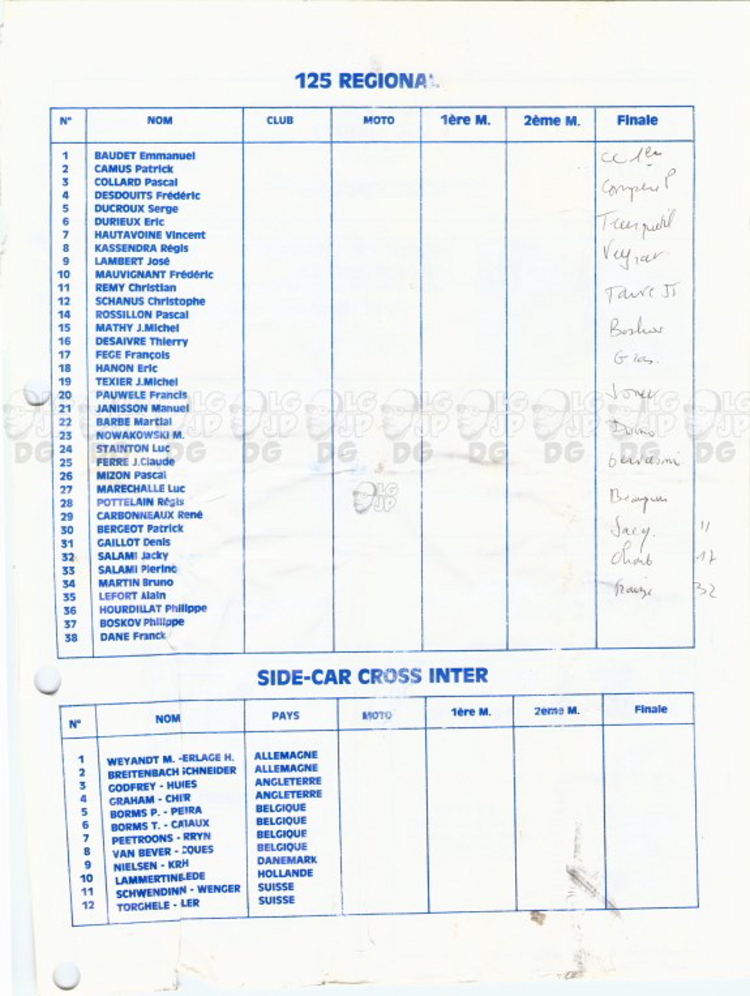 125 REGIONAL
N° NOM CLUB MOTO 1ère M. 2ème M. Finale
1 BAUDET Emmanuel
2 CAMUS Patrick
3 COLLARD Pascal
4 DESDOUITS Frédéric
5 DUCROUX Serge
6 DURIEUX Eric
7 HAUTAVOINE Vincent
8 KASSENDRA Régis
9 LAMBERT José
10 MAUVIGNANT Frédéric
11 REMY Christian
12 SCHANUS Christophe
14 ROSSILLON Pascal
15 MATHY J.Michel
16 DESAIVRE Thierry
17 FEGE François
18 HANON Eric
19 TEXIER J.Michel
20 PAUWELE Francis
21 JANISSON Manuel
22 BARBE Martial
23 NOWAKOWSKI M.
24 STAINTON Luc
25 FERRE J.Claude
26 MIZON Pascal
27 MARECHALLE Luc
28 POTTELAIN Régis
29 CARBONNEAUX René
30 BERGEOT Patrick
31 GAILLOT Denis 11
32 SALAMI Jacky
33 SALAMI Pierino 17
34 MARTIN Bruno
35 LEFORT Alain 32
36 HOURDILLAT Philippe
37 BOSKOV Philippe
38 DANE Franck
SIDE-CAR CROSS INTER
N° NOM PAYS MOTO 1ère M. 2ème M. Finale
1 WEYANDT M. -ERLAGE H. ALLEMAGNE
2 BREITENBACH CHNEIDER ALLEMAGNE
3 GODFREY - HUIES ANGLETERRE
4 GRAHAM - CHIR ANGLETERRE
5 BORMS P. - PEIRA BELGIQUE
6 BORMS T. - CAIAUX BELGIQUE
7 PEETROONS - RRYN BELGIQUE
8 VAN BEVER - OUES BELGIQUE
9 NIELSEN - KRH DANEMARK
10 LAMMERTINEDE HOLLANDE
11 SCHWENDINN - WENGER SUISSE
12 TORGHELE - LER SUISSE